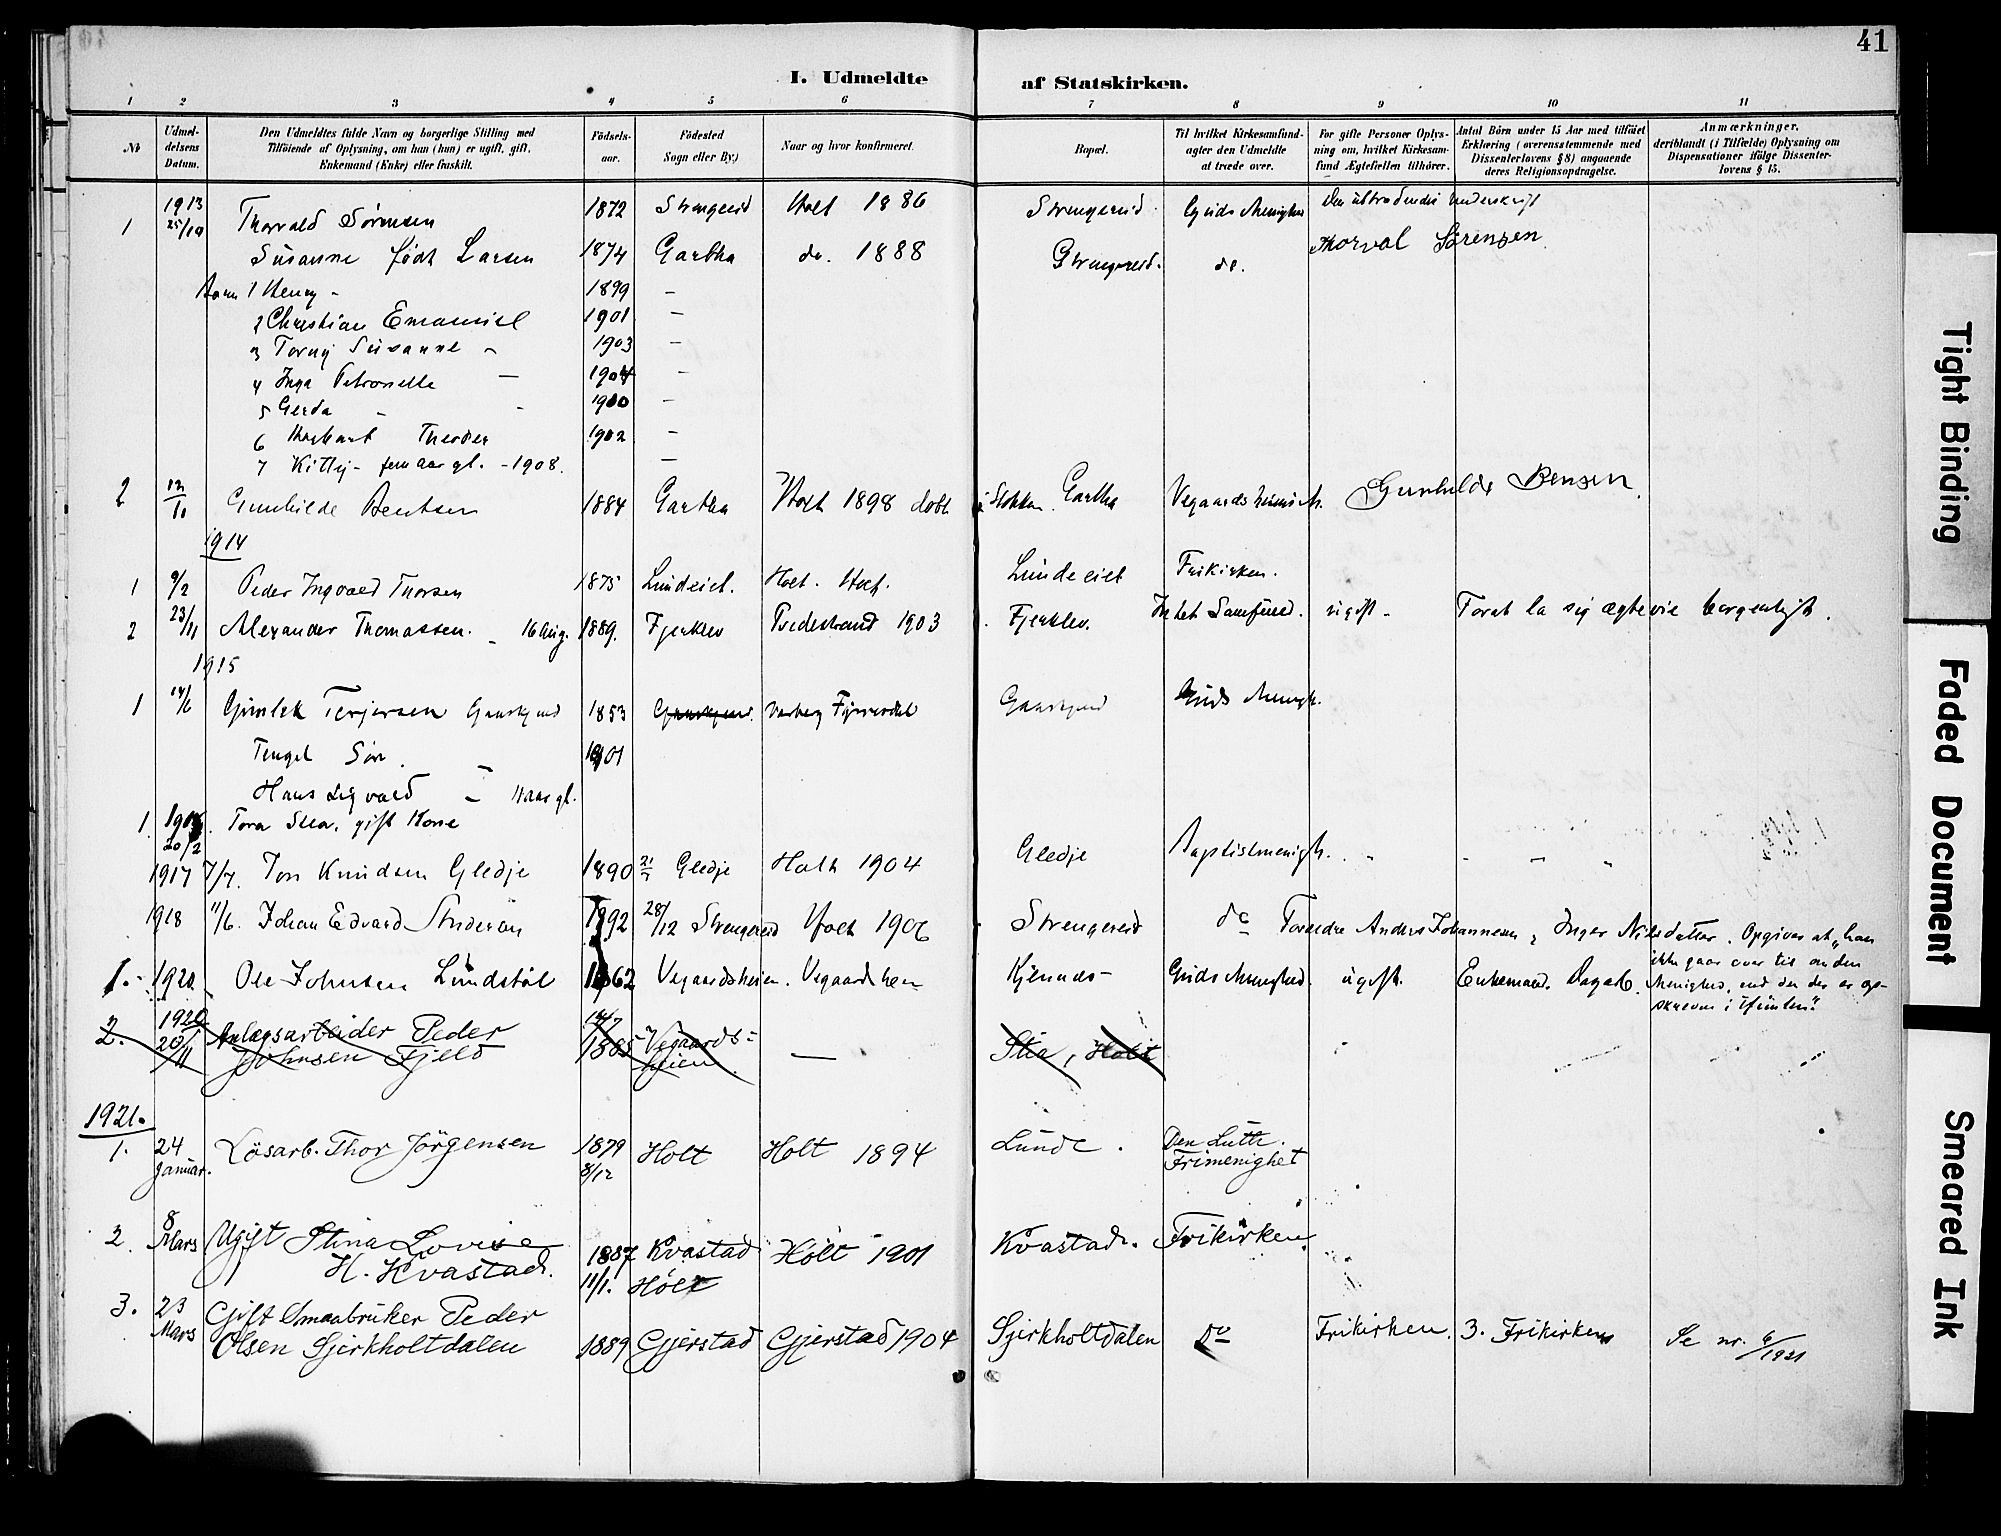 41
I. Udmeldte af Statskirken.
1 2 3 4 5 6 7 8 9 10 11
No
Udmeldelsens Datum.
Den Udmeldtes fulde Navn og borgerlige Stilling med Tilføiende af Oplysning, om han (hun) er ugift, gift, Enkemand (Enke) eller fraskilt.
Fødselsaar.
Fødested Sogn eller By.)
Naar og hvor konfirmeret.
Bopæl.
Til hvilket Kirkesamfund agter den Udmeldte at træde over.
For gifte Personer Oplysning om, hvilket Kirkesamfund Ægtefællen tilhører.
Antal Børn under 15 Aar med tilføiet Erklæring (overensstemmende med Dissenterlovens § 8) angaaende deres Religionsopdragelse.
Anmærkninger, deriblandt (i Tilfælde) Oplysning om Dispensationer ifølge Dissenterlovens § 15.
1 1913 25/10 Thorvald Sørensen 1872 Strengereid Holt 1886 Strengereid Guds Menighed Den udtrædendes Underskrift
Susanne født Larsen 1874 Gartha do. 1888 Strengereid. do. Thorval Sørensen
Børn 1 Henry - 1899 -
2 Christian Emanuel 1901 -
3 Torny Susanne - 1903 -
4 Inga Petronelle - 1904 -
5 Gerda - - 1900 -
6 Theodor 1902 -
7 Kitty - fem aar gl. - 1908. -
2 12/10 Gunhilde Bentsen 1884 Gartha Holt 1898 døbt i Stokken. Gartha Gunhilde Bensen
1914
1 9/2 Peder Ingvald Thorsen 1875 Lundeiet. Holt. Holt. Lundeeiet Frikirken.
2 23/11 Alexander Thomassen. - 16 Aug. 1889. Fjerklev Tvedestrand 1903 Fjerklev. Intet Samfund. ugift - Forat la sig ægtevie borgerligt.
1915
1 14/6 Terjersen 1853 Fyrresdal Guds Menigh.
Søn. 1901
Hans Sigvald - 11 aar gl.
1. 20/2 Tora Slea. gift Kone
1917 7/7. Jon Knudsen Gledje 1890 21/7 Gledje Holt 1904 Gledje Baptistmenigh.
1918 11/6. Johan Edvard 1892 28/12 Strengereid Holt 1906 Strengereid do Forældre Anders Johannesen, Inger Nilsdatter. Opgiver at "han
ikke gaar over til anden
1.- 1920 Ole Johnsen Lundstøl 1862 Vegaardsheien. Vegaardsheien Kjennes- Guds Menighed. ugift. Enkemand. Menighed, end den der er op-
skreven i Himlen."
2. 1920 20/11 Anlægsarbeider Peder Johnsen Fjeld 1885 Vegaards-heien - Slia, Holt
1921.
1. 24 Januar. Løsarb. Thor Jørgensen 1879 8/12 Holt Holt 1894 Lunde. Den Luth. Frimenighet
2. 8 Mars Ugift Stina Lovise H. Kvastad. 1887 11/1. Kvastad Holt Holt 1901 Kvastad. Frikirken.
3. 23 Mars Gift Smaabruker Peder Olsen Sjirkholtdalen 1889 Gjerstad Gjerstad 1904 Sjirkholtdalen Do Frikirken. 3. Frikirken Se nr. 6/1921
Tight Binding
Faded Document
Smeared Ink